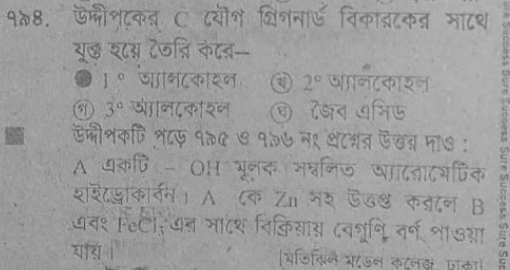 ৭৯৪. উদ্দীপকের C যৌগ গ্রিগনার্ড বিকারকের সাথে
যুক্ত হয়ে তৈরি করে—
1° অ্যালকোহল ㉠ 2° অ্যালকোহল
গ 3° অ্যালকোহল ঘ জৈব এসিড
উদ্দীপকটি পড়ে ৭৯৫ ও ৭৯৬ নং প্রশ্নের উত্তর দাও :
A একটি – OH মূলক সম্বলিত অ্যারোমেটিক
হাইড্রোকার্বন। A কে Zn সহ উত্তপ্ত করলে B
এবং FeCl₃ এর সাথে বিক্রিয়ায় বেগুনি বর্ণ পাওয়া
যায়।
মডেল কলেজ, ঢাকা]
Sure Success Sure Success Sure Success Sure